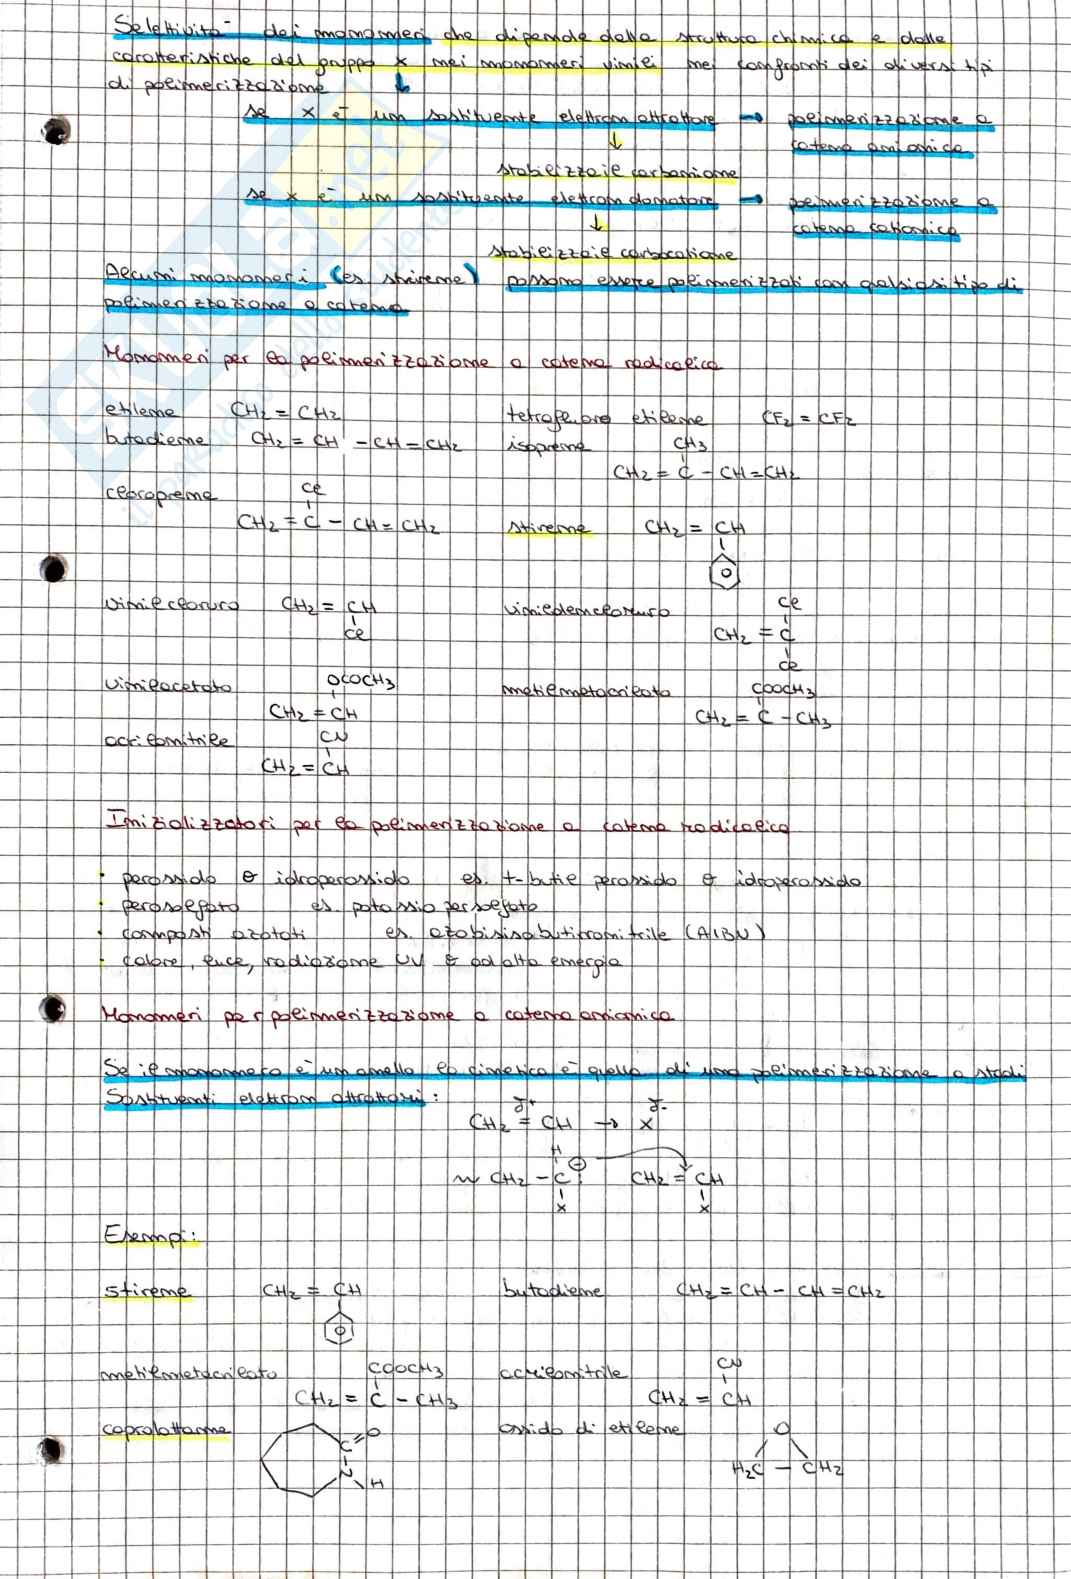 Selettività dei monomeri che dipende dalla struttura chimica e dalle
caratteristiche del gruppo x nei monomeri vinili nei confronti dei diversi tipi
di polimerizzazione ↓
se x è un sostituente elettron attrattore → polimerizzazione a
catena anionica
↓
stabilizza il carbanione
se x è un sostituente elettron donatore → polimerizzazione a
catena cationica
↓
stabilizza il carbocatione
Alcuni monomeri (es. stirene) possono essere polimerizzati con qualsiasi tipo di
polimerizzazione a catena
Monomeri per la polimerizzazione a catena radicalica
etilene CH2 = CH2 tetrafluoro etilene CF2 = CF2
butadiene CH2 = CH - CH = CH2 isoprene CH3
CH2 = C - CH = CH2
cloroprene Cl
CH2 = C - CH = CH2 stirene CH2 = CH
vinilcloruro CH2 = CH
Cl
Cl
CH2 = C
Cl
vinilacetato OCOCH3
CH2 = CH
metilmetacrilato COOCH3
CH2 = C - CH3
acrilonitrile CN
CH2 = CH
Inizializzatori per la polimerizzazione a catena radicalica
· perossido o idroperossido es. t-butil perossido o idroperossido
· persolfato es. potassio persolfato
· composti azotati es. azobisisobutirronitrile (AIBN)
· calore, luce, radiazione UV o ad alta energia
Monomeri per polimerizzazione a catena anionica
Se il monomero è un anello la cinetica è quella di una polimerizzazione a stadi
Sostituenti elettron attrattori:
δ+ δ-
CH2 = CH → x
H
CH2 - C ⊖ CH2 = CH
x x
Esempi:
stirene CH2 = CH butadiene CH2 = CH - CH = CH2
metilmetacrilato COOCH3
CH2 = C - CH3
acrilonitrile CN
CH2 = CH
caprolattame C = O
N
H
ossido di etilene O
H2C - CH2